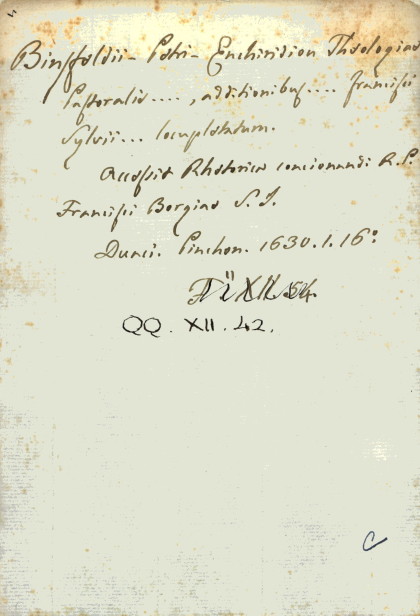 Binsfeldii - Petri - Enchiridion Theologiae
Pastoralis...., additionibus.... Francisci
Sylvii... locupletatum.
Accessit Rhetorica concionandi R.P.
Francisci Borgiae S. J.
Duaci. Pinchon. 1630. 1. 16º
XII.54.
QQ. XII. 42.
C